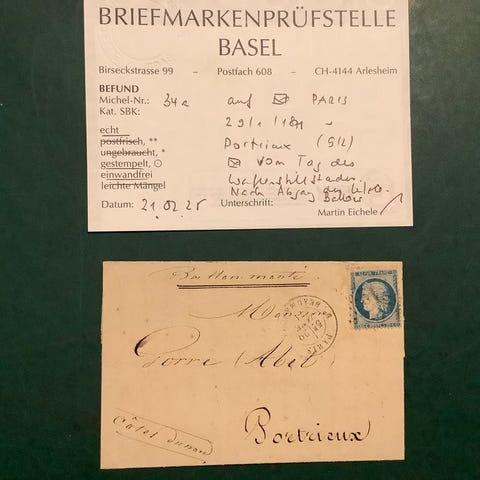 BRIEFMARKENPRÜFSTELLE
BASEL
Birseckstrasse 99 – Postfach 608 – CH-4144 Arlesheim
BEFUND
Michel-Nr.: 34a auf PARIS
Kat. SBK: 29/1/1871
echt
postfrisch, ** Portrieux
ungebraucht, *
gestempelt, ⊙ vom Tag des
einwandfrei Waffenstillstandes.
leichte Mängel Nach Abgang des letzten Ballons
Datum: 21.02.25 Unterschrift:
Martin Eichele
Ballon monté
Monsieur
Gorre (Abel)
Portrieux
Côtes du nord
PARIS